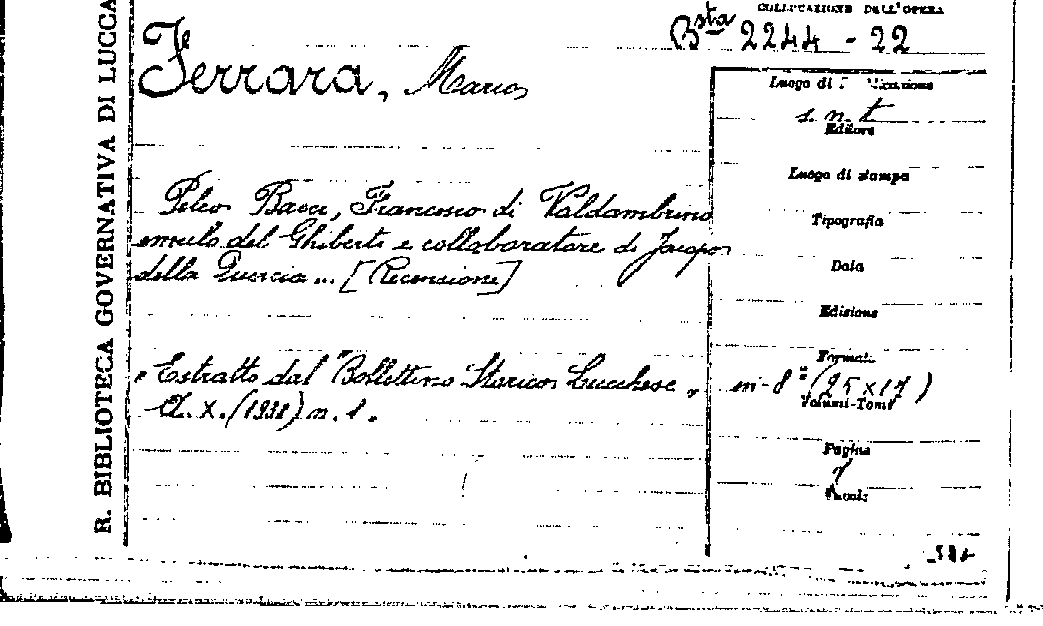 R. BIBLIOTECA GOVERNATIVA DI LUCCA
COLLOCAZIONE DELL'OPERA
Bsta 2244 - 22
Ferrara, Mario
Peleo Bacci, Francesco di Valdambrino
emulo del Ghiberti e collaboratore di Jacopo
della Quercia ... [Recensione]
Estratto dal "Bollettino Storico Lucchese„
A. X. (1938) n. 1.
Luogo di
s. n. t
Editore
Luogo di stampa
Tipografia
Data
Edizione
Formato
in-8° (25 x 17)
Volumi-Tomi
Pagine